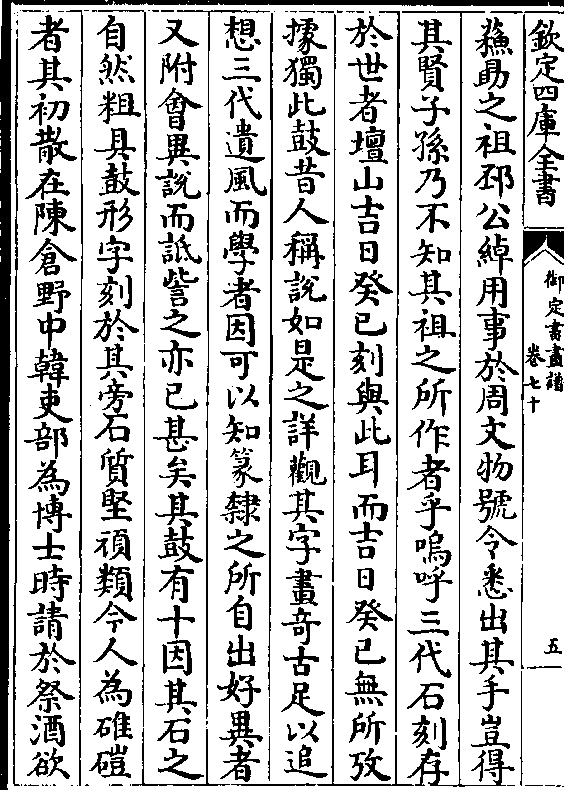 欽定四庫全書
御定書畫譜
卷七十
五
蘓勗之祖邳公綽用事於周文物號令悉出其手豈得
其賢子孫乃不知其祖之所作者乎嗚呼三代石刻存
於世者壇山吉日癸巳刻與此耳而吉日癸巳無所攷
據獨此鼓昔人稱說如是之詳觀其字畫竒古足以追
想三代遺風而學者因可以知篆隸之所自出好異者
又附會異說而詆訾之亦已甚矣其鼓有十因其石之
自然粗具鼓形字刻於其旁石質堅頑類今人為碓磑
者其初散在陳倉野中韓吏部為博士時請於祭酒欲